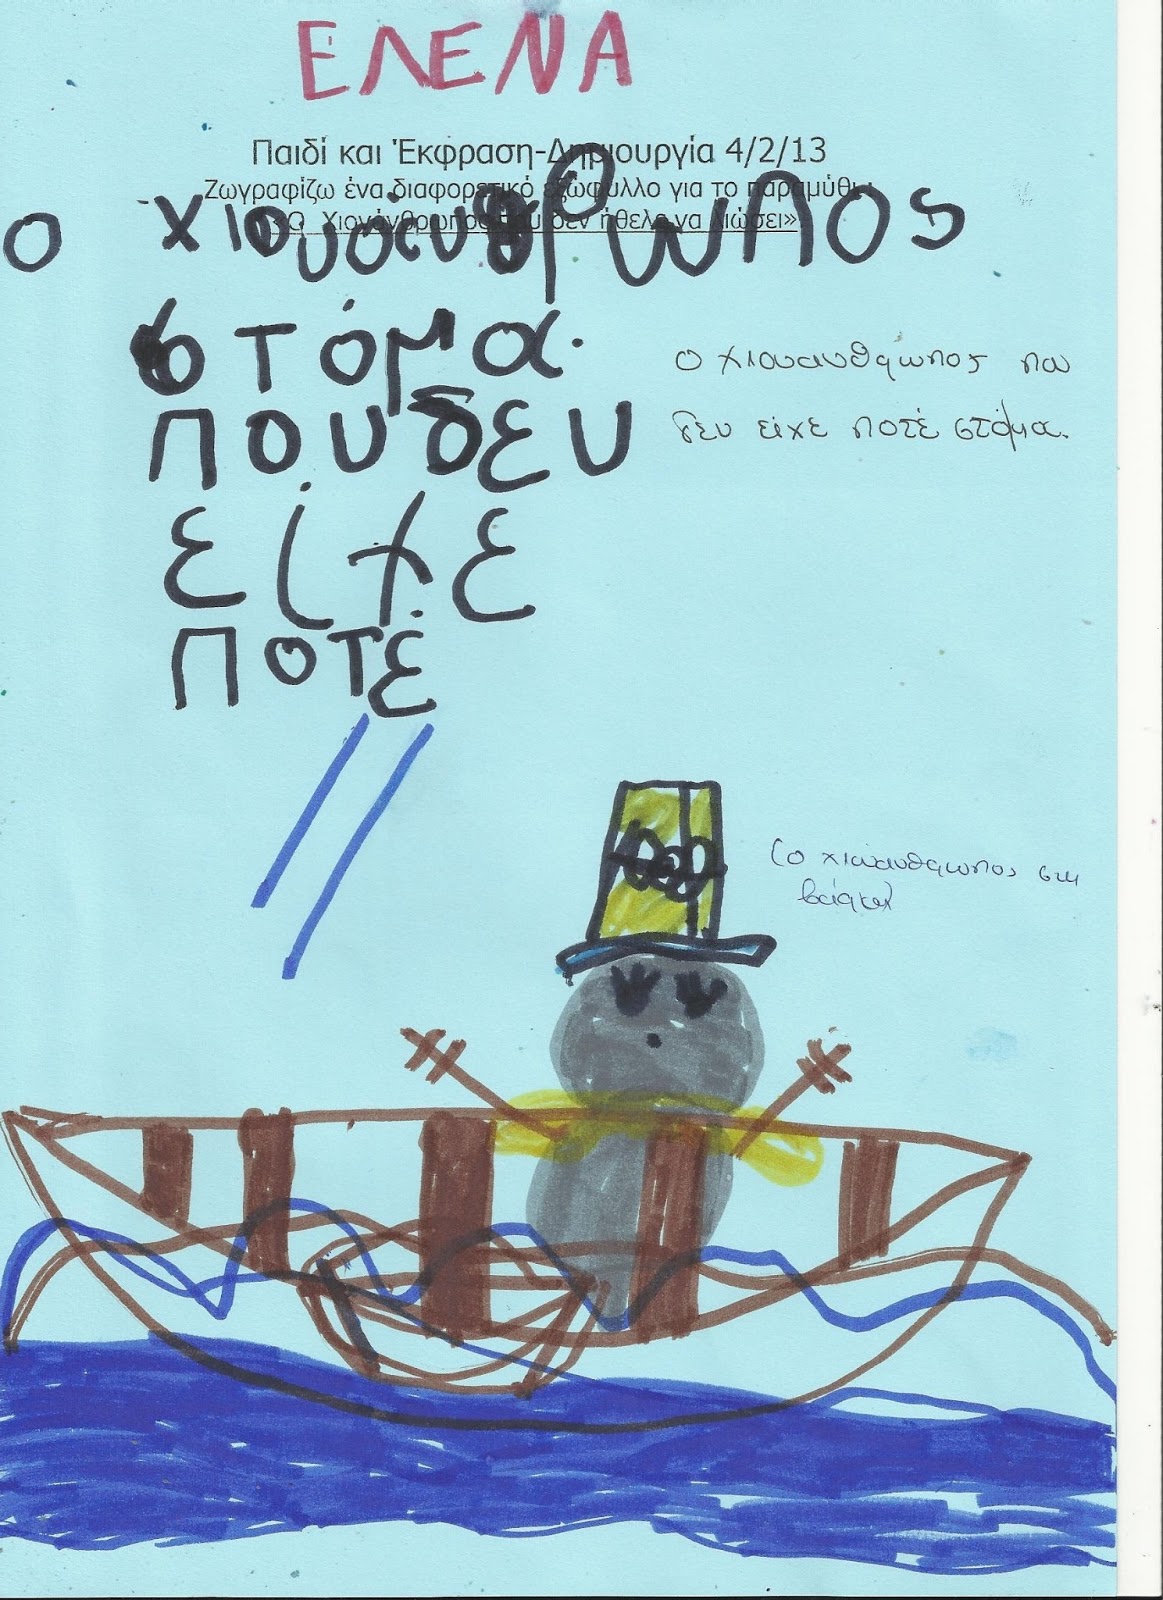 ΕΛΕΝΑ
Παιδί και Έκφραση-Δημιουργία 4/2/13
Ζωγραφίζω ένα διαφορετικό εξώφυλλο για το παραμύθι:
«Ο Χιονάνθρωπος που δεν ήθελε να λιώσει»
ο χιονάνθρωπος
στόμα.
που δεν
είχε
ποτέ
ο χιονανθρωπος που
δεν είχε ποτέ στόμα.
(ο χιονανθρωπος στη
βάρκα)